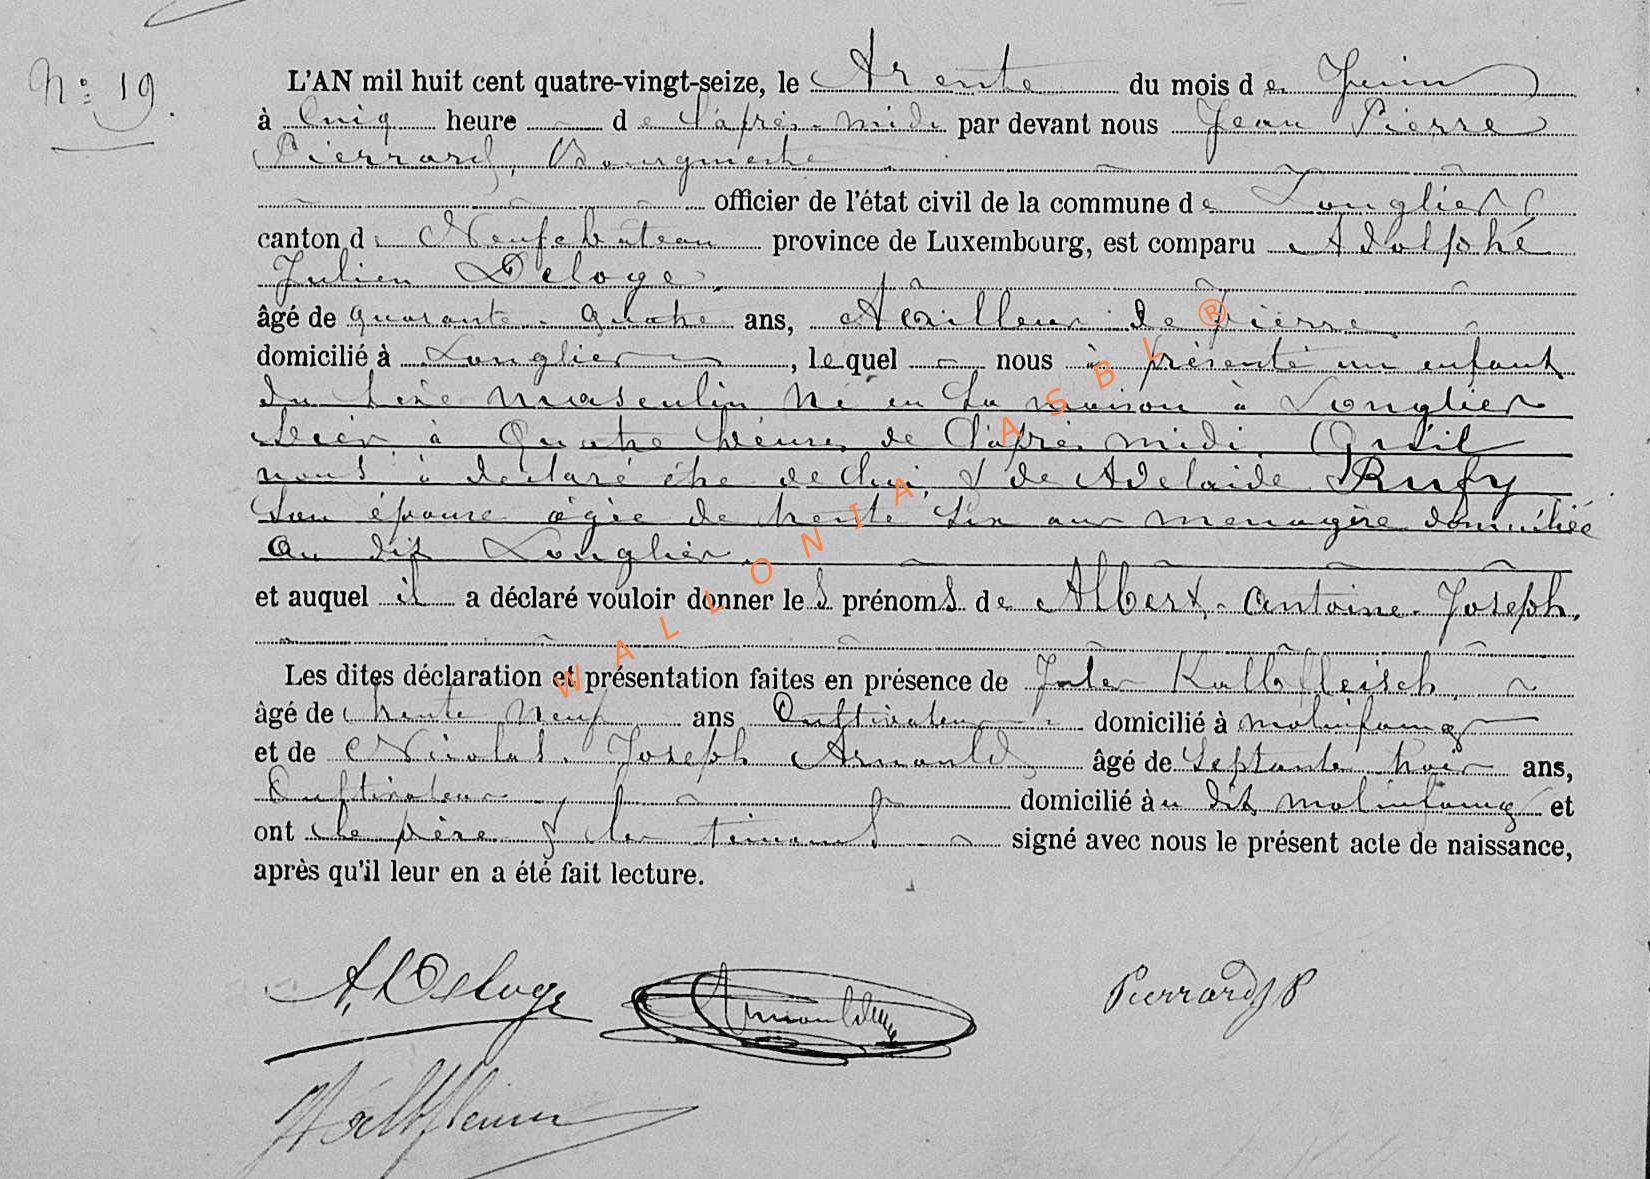 N° 19.
L'AN mil huit cent quatre-vingt-seize, le Trente du mois de Juin
à Cinq heure de l'après-midi par devant nous Jean Pierre
Pierrard, Bourgmestre
officier de l'état civil de la commune de Longlier
canton de Neufchâteau province de Luxembourg, est comparu Adolphe
Julien Deloge,
âgé de quarante-quatre ans, Tailleur de pierre
domicilié à Longlier, lequel nous à présenté un enfant
du sexe masculin né en sa maison à Longlier
hier à Quatre heures de l'après midi Qu'il
nous à déclaré être de lui & de Adelaide Rufy
son épouse âgée de trente six ans menagère domiciliée
au dit Longlier.
et auquel il a déclaré vouloir donner les prénoms de Albert-Antoine-Joseph.
Les dites déclaration et présentation faites en présence de Jules Kalbfleisch,
âgé de trente neuf ans Cultivateur domicilié à molinfaing
et de Nicolas Joseph Arnould âgé de Septante trois ans,
Cultivateur domicilié au dit molinfaing et
ont le père & les témoins signé avec nous le présent acte de naissance,
après qu'il leur en a été fait lecture.
A. Deloge Arnould Pierrard JP
Kalbfleisch
WALLONIA ASBL ®